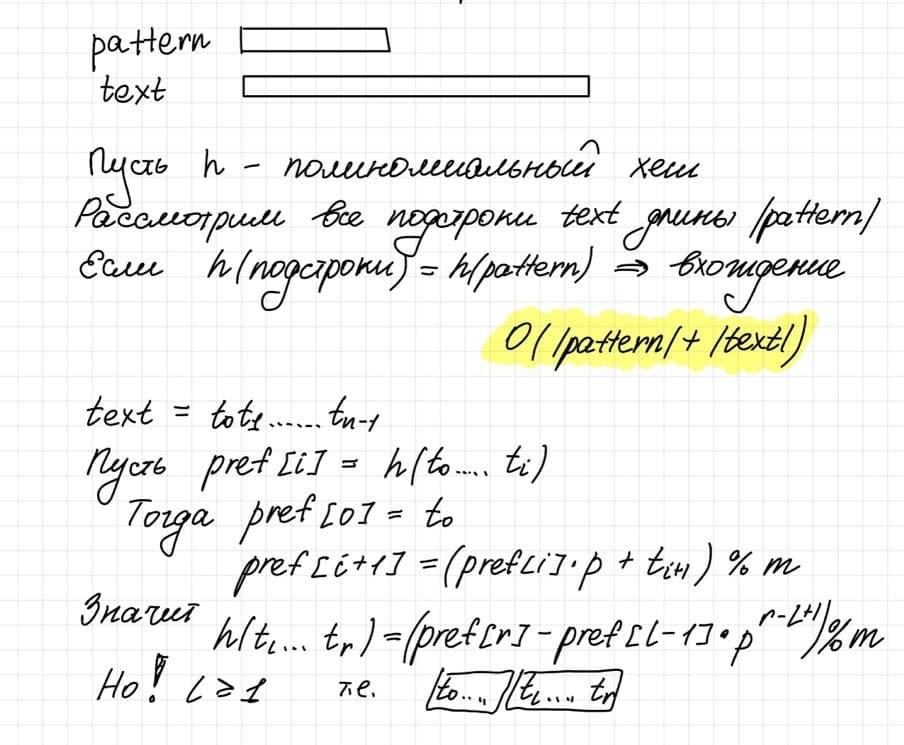 pattern
text
Пусть h - полиномиальный хеш
Рассмотрим все подстроки text длины |pattern|
Если h(подстроки) = h(pattern) ⇒ вхождение
O(|pattern| + |text|)
text = t₀t₁......tₙ₋₁
Пусть pref[i] = h(t₀.....tᵢ)
Тогда pref[0] = t₀
pref[i+1] = (pref[i]·p + tᵢ₊₁) % m
Значит h(t_l...t_r) = (pref[r] - pref[l-1]·p^{r-l+1}) % m
Но! l ≥ 1 т.е. t₀.... t_l.... t_r